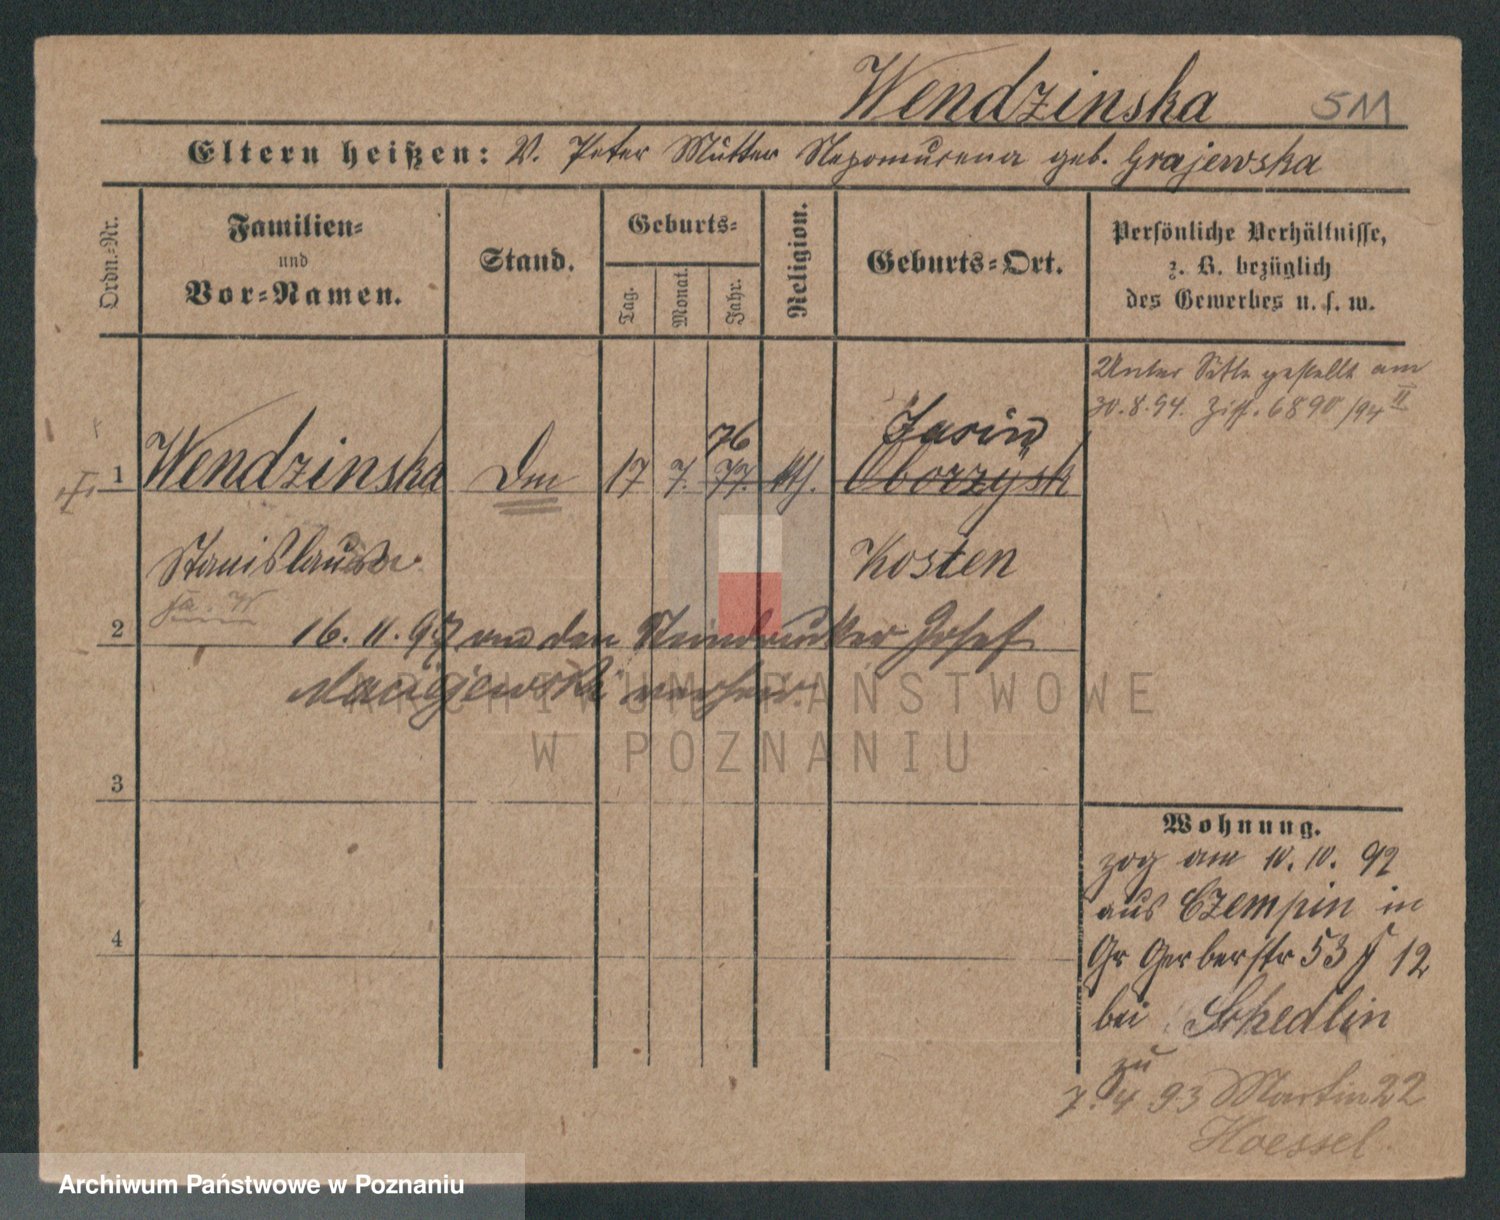 Wendzinska 5M
Eltern heißen: V. Peter Mutter Nepomucena geb. Grajewska
Ordn.-Nr.
Familien-
und
Vor-Namen.
Stand.
Geburts-
Tag.
Monat.
Jahr.
Religion.
Geburts-Ort.
Persönliche Verhältnisse,
z. B. bezüglich
des Gewerbes u. s. w.
Unter Sitte gestellt am
30.8.94. Ziff. 6890/94 II
76
Jasin
1 Wendzinska 17 7. 77. kth. Oborzysk
Stanislaus Kosten
2
16. 11. 97 den Steindrucker Josef
Maciejewski
3
4
Wohnung.
zog am 10. 10. 92
aus Czempin in
Gr Gerberstr 53 12
bei Schedlin
zu
7. 4 93 Martin 22
Hoessel.
ARCHIWUM PAŃSTWOWE
W POZNANIU
Archiwum Państwowe w Poznaniu